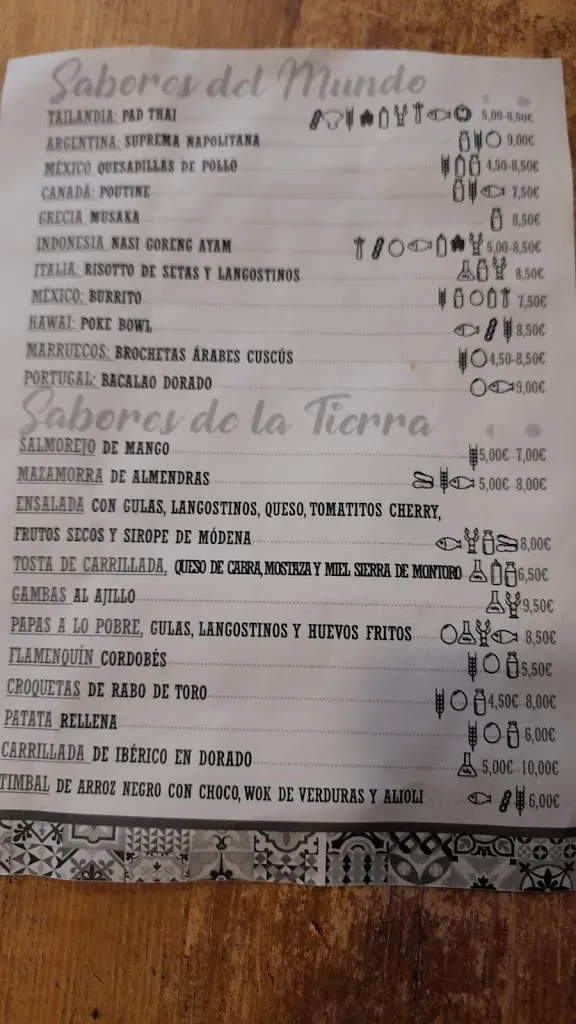 Sabores del Mundo
TAILANDIA: PAD THAI 5,00-8,50€
ARGENTINA: SUPREMA NAPOLITANA 9,00€
MÉXICO QUESADILLAS DE POLLO 4,50-8,50€
CANADÁ: POUTINE 7,50€
GRECIA MUSAKA 8,50€
INDONESIA NASI GORENG AYAM 5,00-8,50€
ITALIA: RISOTTO DE SETAS Y LANGOSTINOS 8,50€
MÉXICO: BURRITO 7,50€
HAWAI: POKE BOWL 8,50€
MARRUECOS: BROCHETAS ÁRABES CUSCÚS 4,50-8,50€
PORTUGAL: BACALAO DORADO 9,00€
Sabores de la Tierra
SALMOREJO DE MANGO 5,00€ 7,00€
MAZAMORRA DE ALMENDRAS 5,00€ 8,00€
ENSALADA CON GULAS, LANGOSTINOS, QUESO, TOMATITOS CHERRY,
FRUTOS SECOS Y SIROPE DE MÓDENA 8,00€
TOSTA DE CARRILLADA, QUESO DE CABRA, MOSTAZA Y MIEL SIERRA DE MONTORO 6,50€
GAMBAS AL AJILLO 9,50€
PAPAS A LO POBRE, GULAS, LANGOSTINOS Y HUEVOS FRITOS 8,50€
FLAMENQUÍN CORDOBÉS 5,50€
CROQUETAS DE RABO DE TORO 4,50€ 8,00€
PATATA RELLENA 6,00€
CARRILLADA DE IBÉRICO EN DORADO 5,00€ 10,00€
TIMBAL DE ARROZ NEGRO CON CHOCO, WOK DE VERDURAS Y ALIOLI 6,00€